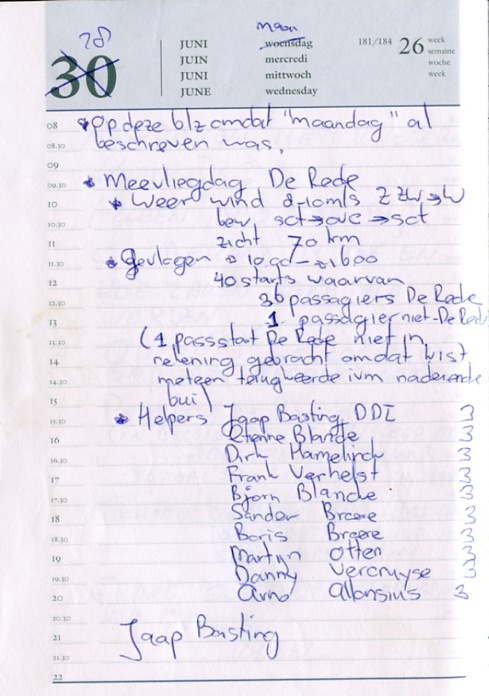 28 maan
30
JUNI woensdag 181/184 26 week
JUIN mercredi semaine
JUNI mittwoch woche
JUNE wednesday week
08 * Op deze blz omdat "maandag" al
08.30 beschreven was.
09
09.30 * Meevliegdag De Rede
10 * Weer wind 8-10 m/s ZZW→W
10.30 bew sct→ovc→sct
11 zicht 70 km
11.30 * Gevlogen ± 10.00 - ± 1600
12 40 starts waarvan
12.30 36 passagiers De Rede
13 1 passagier niet-De Rede
13.30 (1 pass start De Rede niet in
14 rekening gebracht omdat kist
14.30 meteen terugkeerde ivm naderende
15 bui)
15.30 * Helpers Jaap Basting DDI 3
16 Etienne Blande 3
16.30 Dirk Hamelinck 3
17 Frank Verhelst 3
17.30 Bjorn Blancke 3
18 Sander Breere 3
18.30 Boris Breere 3
19 Martijn Otten 3
19.30 Danny Vercruysse 3
20 Arno Allonsius 3
20.30
21 Jaap Basting
21.30
22